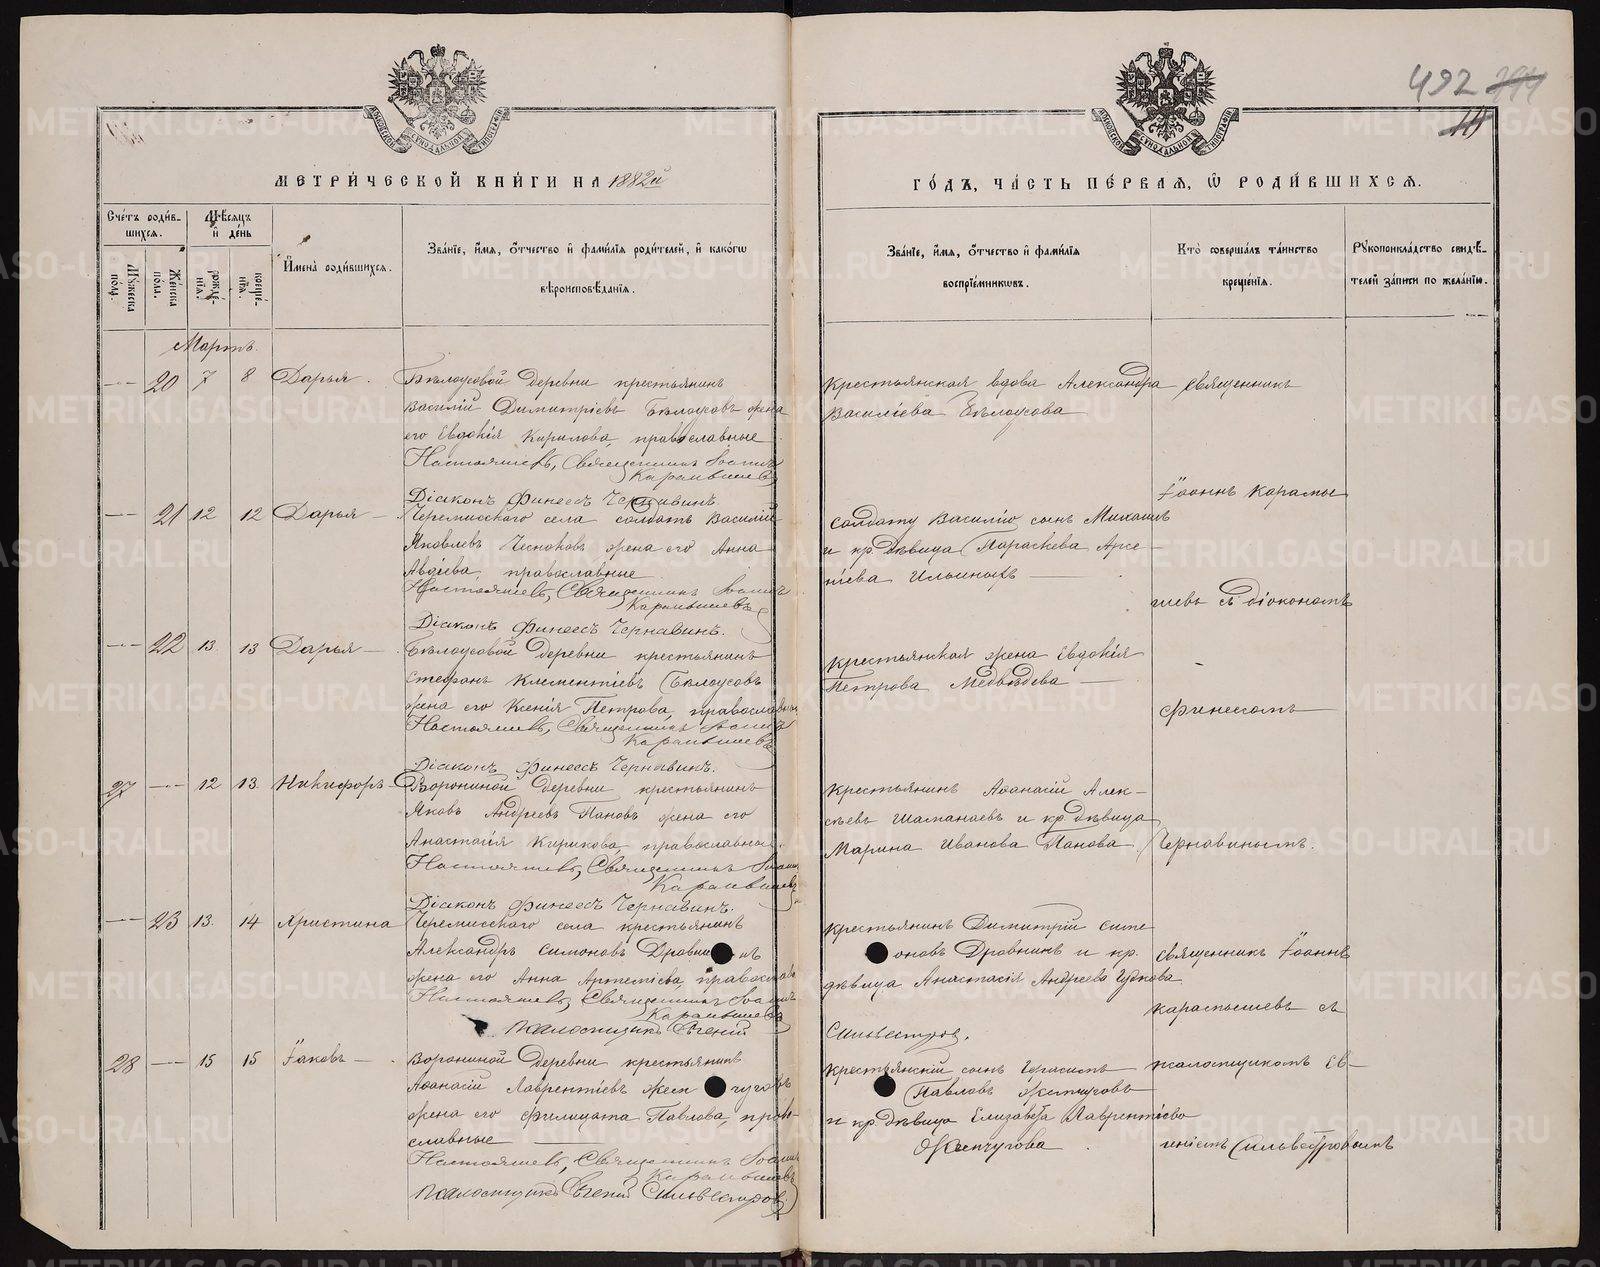 492
МЕТРИЧЕСКОЙ КНИГИ НА 1882й
ГОДЪ, ЧАСТЬ ПЕРВАЯ, Ѡ РОДИВШИХСЯ.
Счетъ родив-
шихся.
Мужеска
полу.
Женска
пола.
Мѣсяцъ
и день
рожде-
нія.
креще-
нія.
Имена родившихся.
Званіе, имя, отчество и фамилія родителей, и какогѡ
вѣроисповѣданія.
Званіе, имя, отчество и фамилія
воспріемникѡвъ.
Кто совершалъ таинство
крещенія.
Рукоприкладство свидѣ-
телей записи по желанію.
Мартъ.
20 7 8 Дарья.
Бѣлоусовой деревни крестьянинъ
Василій Димитріевъ Бѣлоусовъ жена
его Евдокія Кирилова, православные
Настоятель, Священникъ Іоаннъ
Карамышевъ
Діаконъ Финеесъ Чернавинъ.
Крестьянская вдова Александра
Василіева Бѣлоусова
Священникъ
Іоаннъ Карамы
21 12 12 Дарья
Черемисскаго села солдатъ Василій
Яковлевъ Чесноковъ жена его Анна
Авдіева, православные
Настоятель, Священникъ Іоаннъ
Карамышевъ
Діаконъ Финеесъ Чернавинъ.
Солдату Василію сынъ Михаилъ
и кр. дѣвица Параскева Арсе-
ніева Ильиныхъ
шевъ съ діакономъ
22 13 13 Дарья
Бѣлоусовой деревни крестьянинъ
Стефанъ Клементіевъ Бѣлоусовъ
жена его Ксенія Петрова, православные
Настоятель, Священникъ Іоаннъ
Карамышевъ
Діаконъ Финеесъ Чернавинъ.
Крестьянская жена Евдокія
Петрова Медвѣдева
Финеесомъ
27 12 13 Никифоръ
Ворониной деревни крестьянинъ
Яковъ Андреевъ Пановъ жена его
Анастасія Кирикова, православные.
Настоятель, Священникъ Іоаннъ
Карамышевъ
Діаконъ Финеесъ Чернавинъ.
Крестьянинъ Аѳанасій Алек-
сѣевъ Шаманаевъ и кр. дѣвица
Марина Иванова Панова
Чернавинымъ.
23 13 14 Христина
Черемисскаго села крестьянинъ
Александръ Симоновъ
жена его Анна Артемьева, православ
Настоятель, Священникъ Іоаннъ
Карамышевъ
Псаломщикъ Евгеній
Сильвестровъ.
Крестьянинъ Димитрій Симе
оновъ Дровнинъ и кр.
дѣвица Анастасія Андреева
Священникъ Іоаннъ
Карамышевъ съ
28 15 15 Іаковъ
Ворониной деревни крестьянинъ
Аѳанасій Лаврентіевъ Жем чуговъ
жена его Филицата Павлова, право-
славные
Настоятель, Священникъ Іоаннъ
Карамышевъ
Псаломщикъ Евгеній Сильвестровъ
Крестьянскій сынъ Герасимъ
Павловъ Жемчуговъ
и кр. дѣвица Елизавета Лаврентіева
Жемчугова
псаломщикомъ Ев-
геніемъ Сильвестровымъ